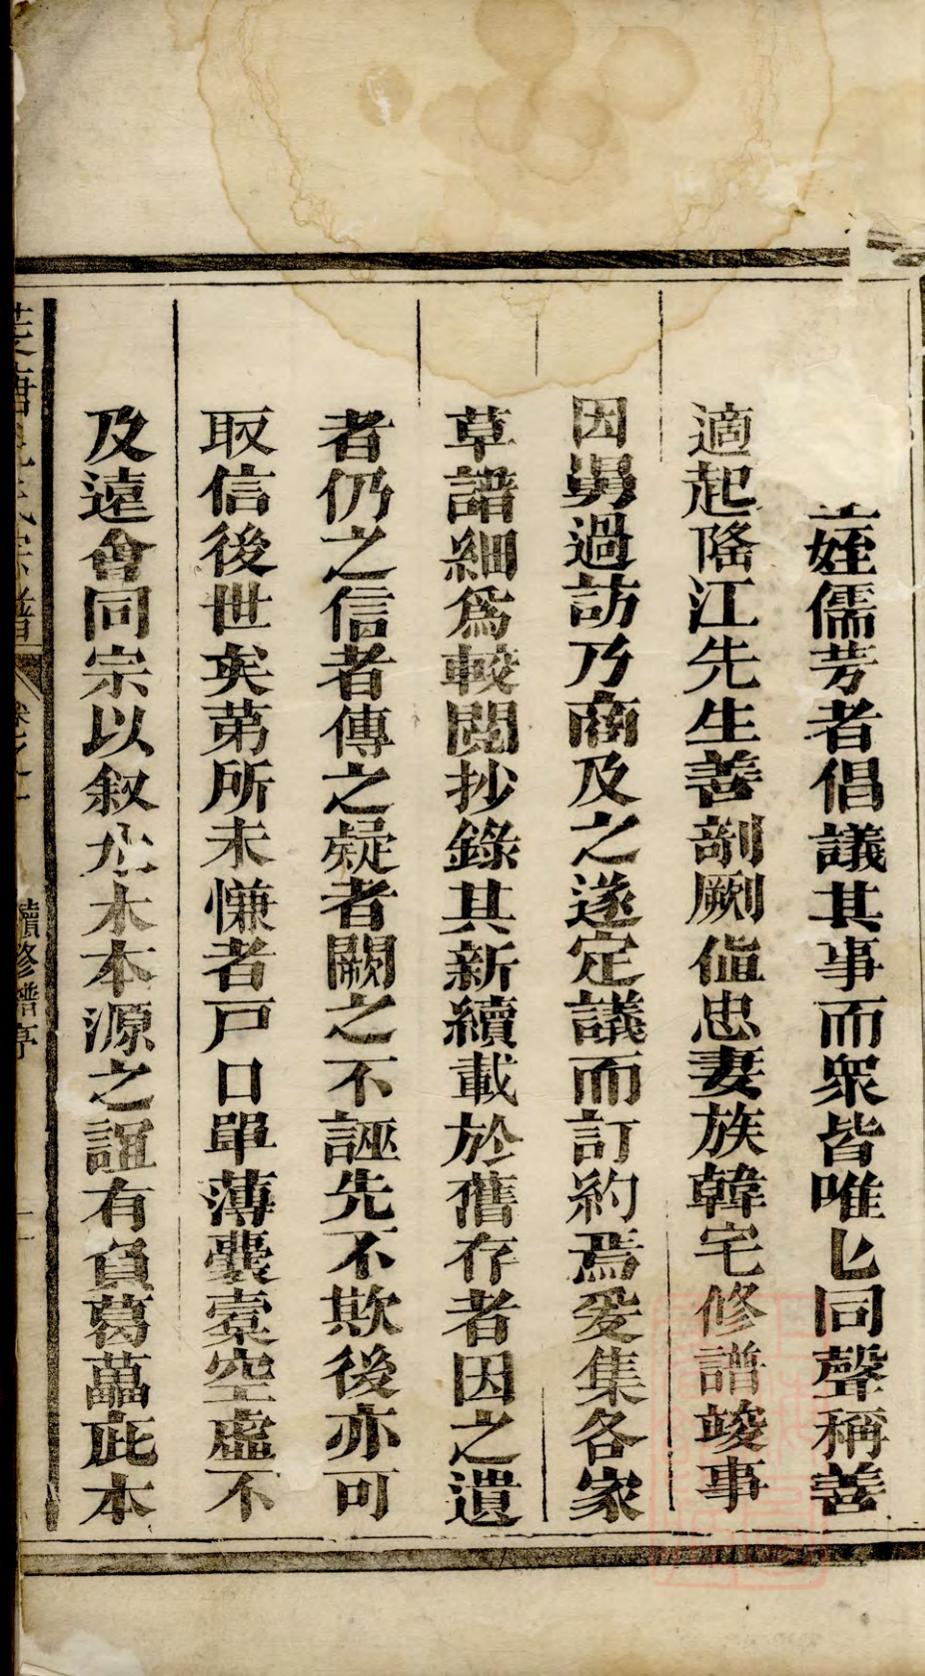 姪儒芳者倡議其事而衆皆唯匕同聲稱善
適起隆江先生善剞劂値忠妻族韓宅修譜竣事
因舅過訪乃商及之遂定議而訂約焉爰集各家
草譜細爲較閲抄錄其新續載於舊存者因之遺
者仍之信者傳之疑者闕之不誣先不欺後亦可
取信後世矣第所未慊者戸口單薄囊槖空虛不
及遠會同宗以叙水木本源之誼有負葛藟庇本
氏宗譜 卷之一 續修譜序 二